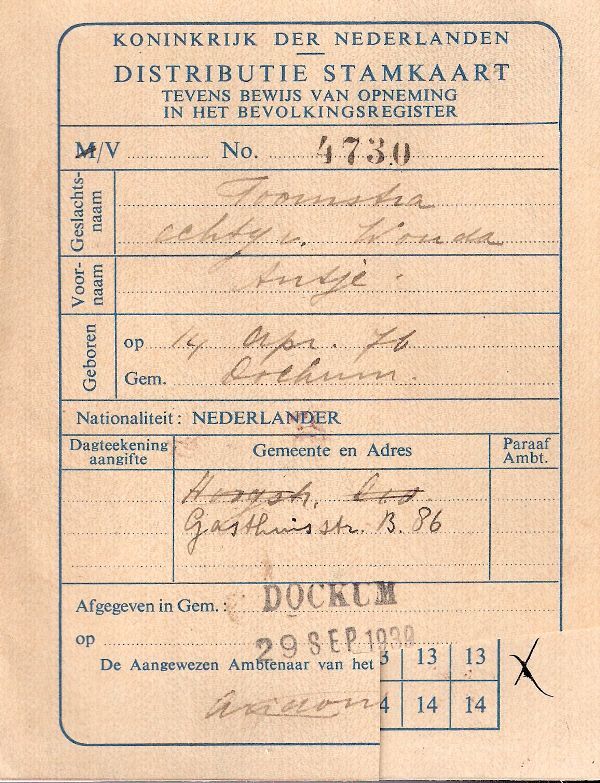 KONINKRIJK DER NEDERLANDEN
DISTRIBUTIE STAMKAART
TEVENS BEWIJS VAN OPNEMING
IN HET BEVOLKINGSREGISTER
M/V No. 4730
Geslachts-
naam
Toornstra
echtg. v. Wouda
Voor-
naam
Antje.
Geboren
op 14 Apr. 76
Gem. Dockum.
Nationaliteit: NEDERLANDER
Dagteekening
aangifte
Gemeente en Adres
Paraaf
Ambt.
Gasthuisstr. B. 86
Afgegeven in Gem.: DOCKUM
op 29 SEP 1939
De Aangewezen Ambtenaar van het
3 13 13
4 14 14
X